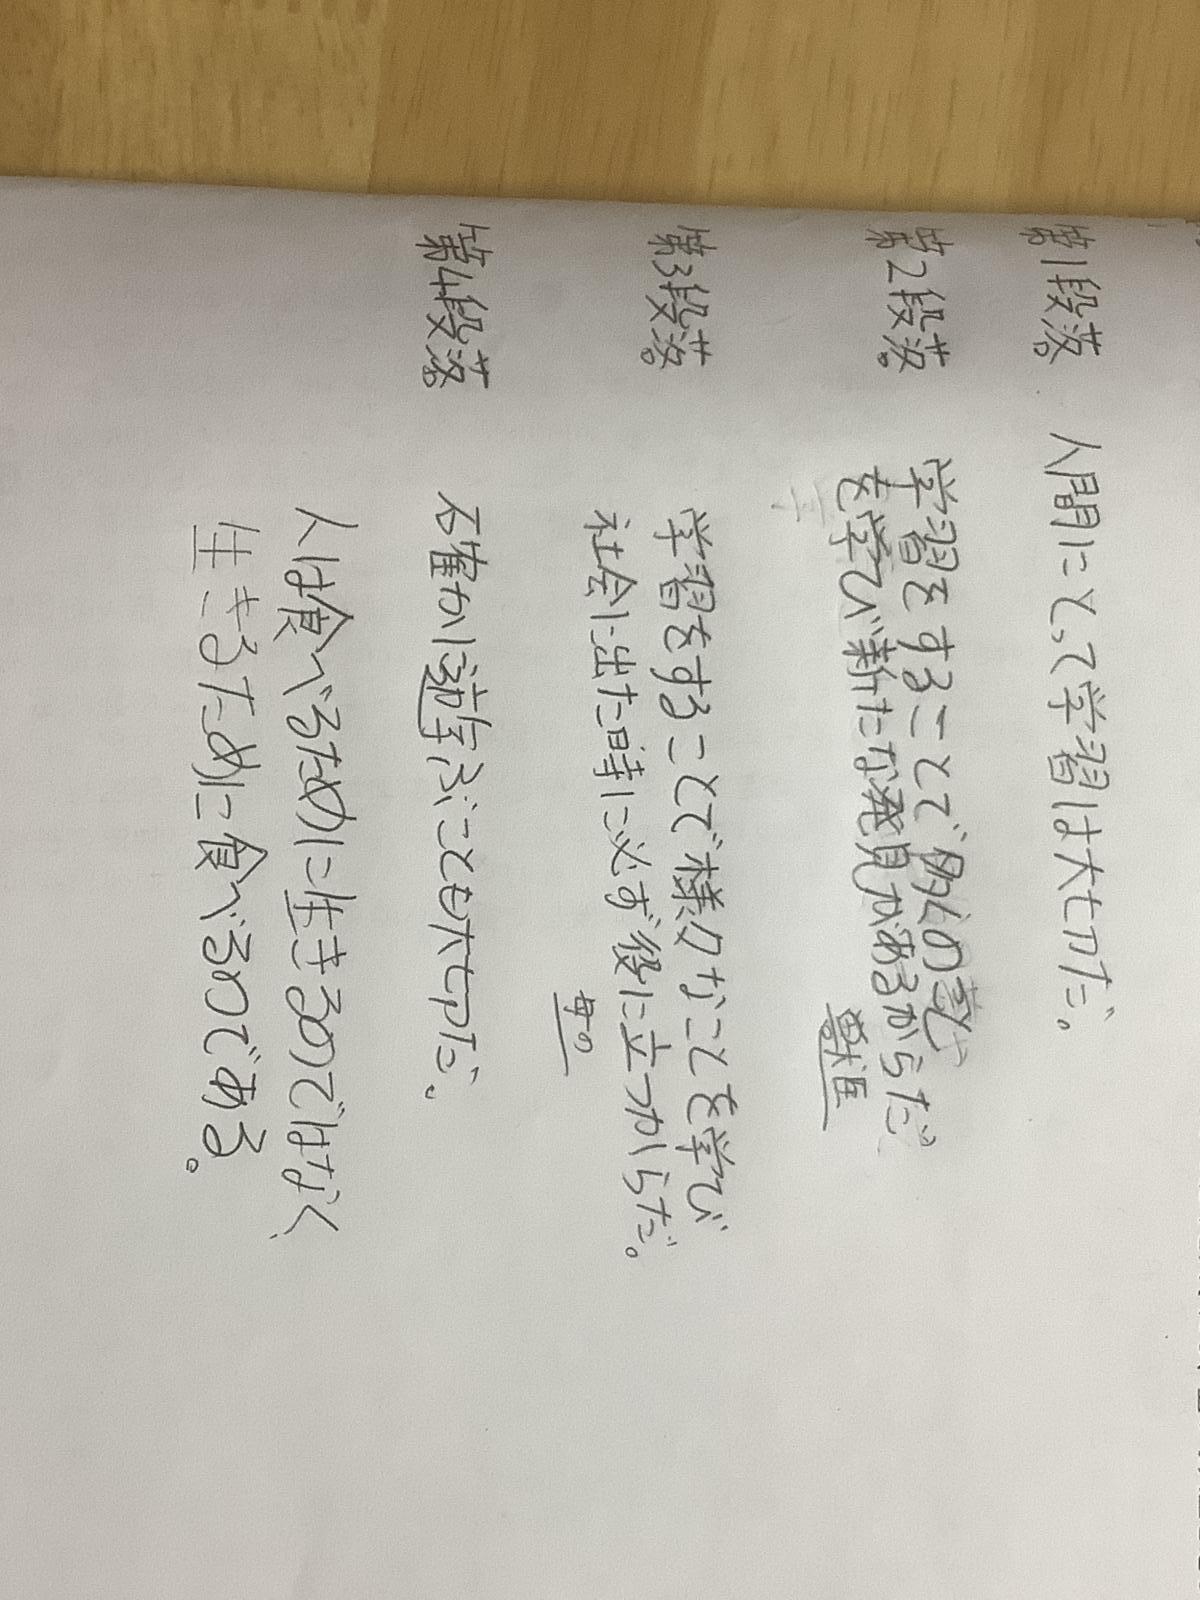 第1段落 人間にとって学習は大切だ。
第2段落 学習をすることで多くの
を学び新たな発見があるからだ。
獣医
第3段落 学習をすることで様々なことを学び
社会に出た時に必ず役に立つからだ。
母の
第4段落 確かに遊ぶことも大切だ。
人は食べるために生きるのではなく、
生きるために食べるのである。